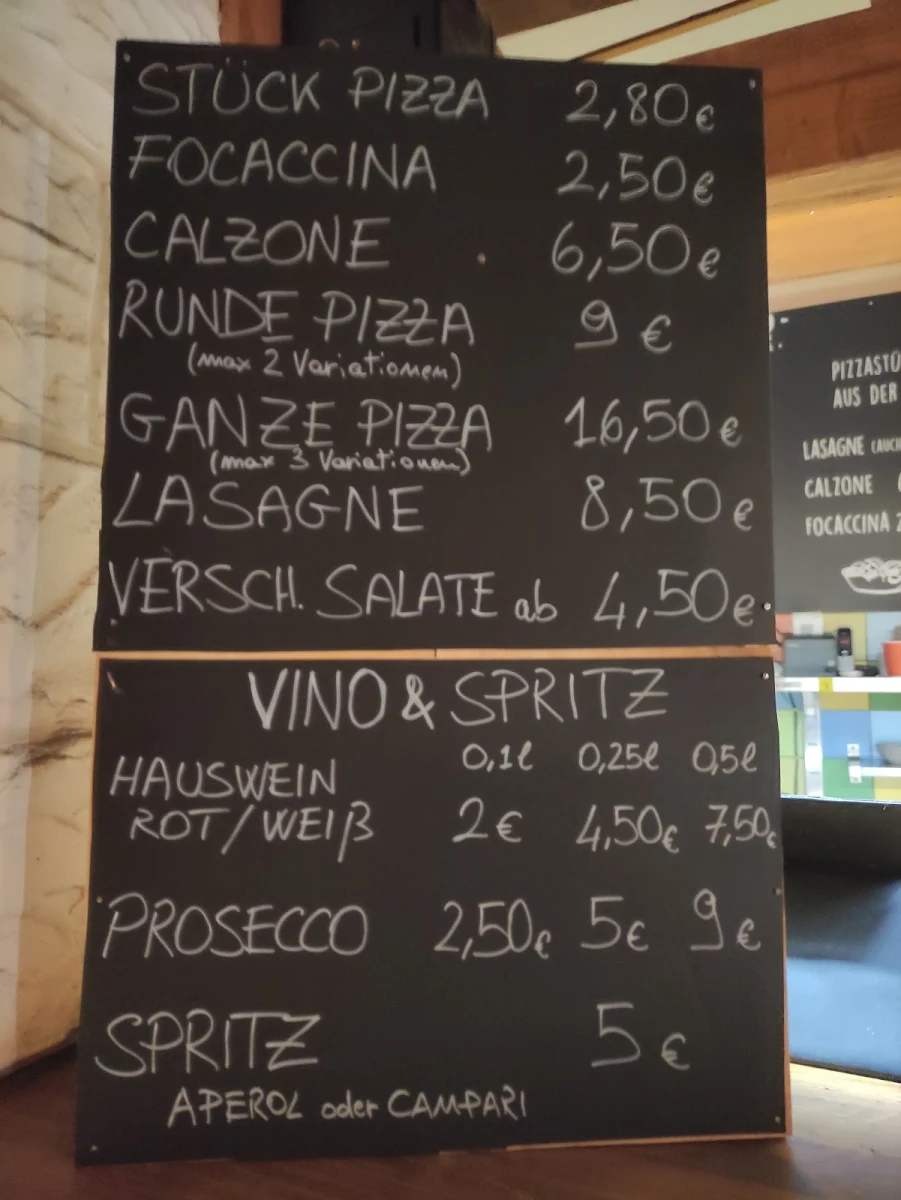 STÜCK PIZZA 2,80€
FOCACCINA 2,50€
CALZONE 6,50€
RUNDE PIZZA 9 €
(max 2 Variationen)
GANZE PIZZA 16,50€
(max 3 Variationen)
LASAGNE 8,50€
VERSCH. SALATE ab 4,50€
VINO & SPRITZ
0,1l 0,25l 0,5l
HAUSWEIN
ROT/WEIß 2€ 4,50€ 7,50€
PROSECCO 2,50€ 5€ 9€
SPRITZ 5€
APEROL oder CAMPARI
PIZZASTÜ
AUS DER
LASAGNE (AUCH
CALZONE
FOCACCINA